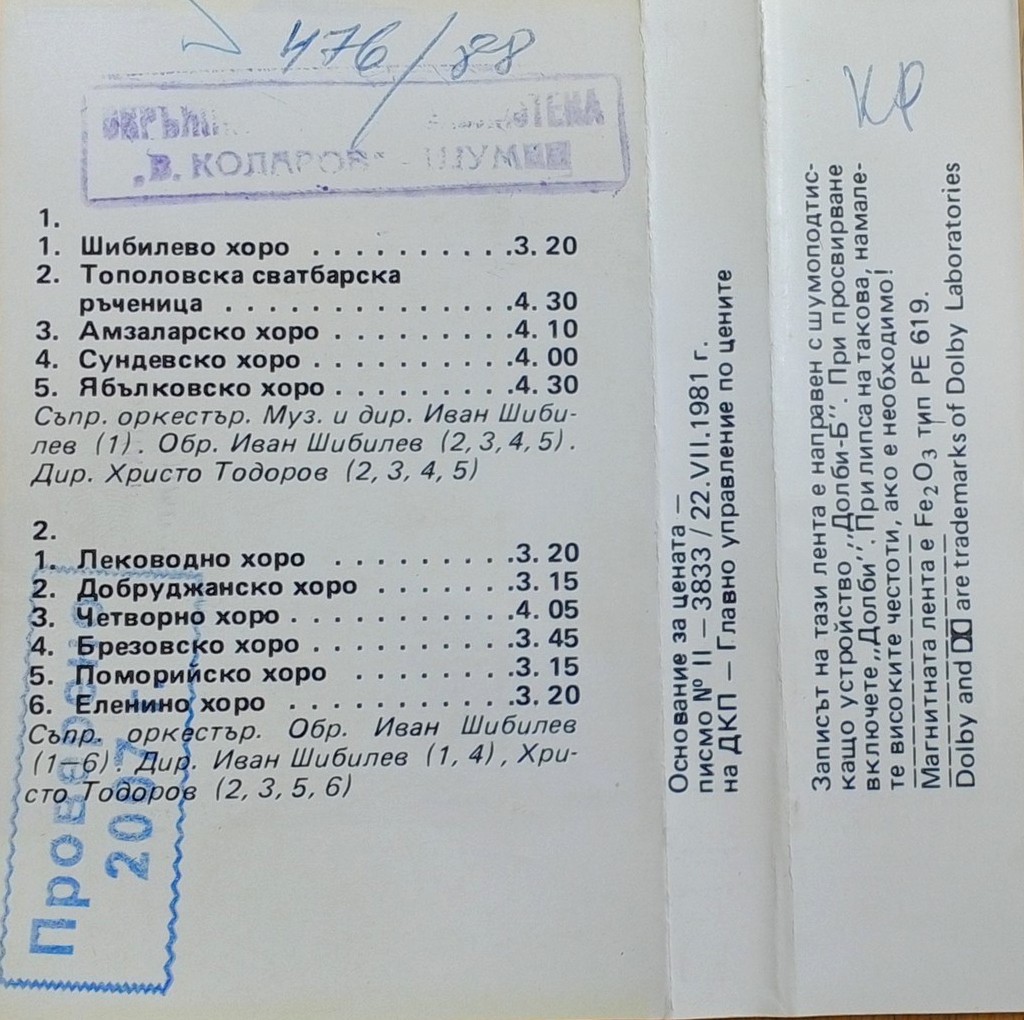 476/88
"В. КОЛАРОВ" - ШУМЕН
1.
1. Шибилево хоро . . . . . . . . . . .3. 20
2. Тополовска сватбарска
ръченица . . . . . . . . . . . . . . .4. 30
3. Амзаларско хоро . . . . . . . . . .4. 10
4. Сундевско хоро . . . . . . . . . . .4. 00
5. Ябълковско хоро . . . . . . . . . .4. 30
Съпр. оркестър. Муз. и дир. Иван Шиби-
лев (1). Обр. Иван Шибилев (2, 3, 4, 5).
Дир. Христо Тодоров (2, 3, 4, 5)
2.
1. Лековoдно хоро . . . . . . . . .3. 20
2. Добруджанско хоро . . . . . . .3. 15
3. Четворно хоро . . . . . . . . . . .4. 05
4. Брезовско хоро . . . . . . . . . .3. 45
5. Поморийско хоро . . . . . . . .3. 15
6. Еленино хоро . . . . . . . . . . .3. 20
Съпр. оркестър. Обр. Иван Шибилев
(1–6). Дир. Иван Шибилев (1, 4), Хри-
сто Тодоров (2, 3, 5, 6)
Проверено
2007
Основание за цената –
писмо № II – 3833 / 22.VII.1981 г.
на ДКП – Главно управление по цените
КР
Записът на тази лента е направен с шумоподтис-
кащо устройство ,,Долби-Б''. При просвирване
включете ,,Долби''. При липса на такова, намале-
те високите честоти, ако е необходимо!
Магнитната лента е Fe₂O₃ тип PE 619.
Dolby and are trademarks of Dolby Laboratories